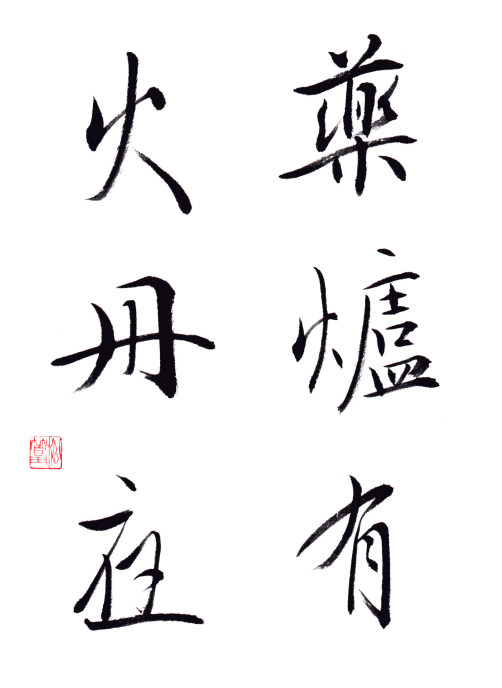 藥爐有
火丹應